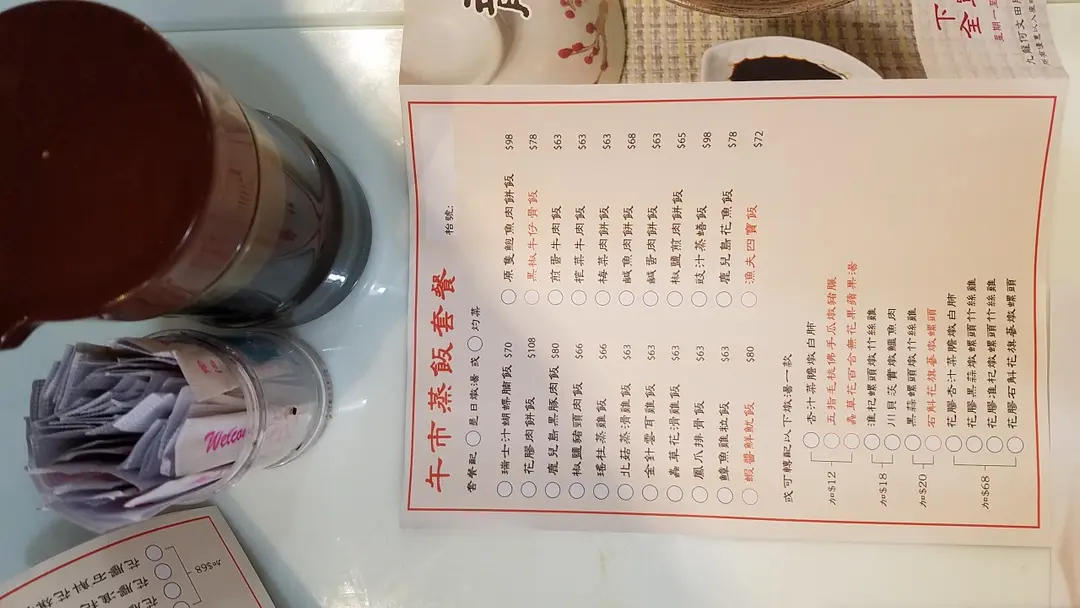 午市蒸飯套餐
枱號:
套餐配 ○ 是日燉湯 或 ○ 灼菜
○ 瑞士汁蝴蝶腩飯 $70
○ 花膠肉餅飯 $108
○ 鹿兒島黑豚肉飯 $80
○ 椒鹽豬頭肉飯 $66
○ 瑤柱蒸雞飯 $66
○ 北菇蒸滑雞飯 $63
○ 金針雲耳雞飯 $63
○ 蟲草花滑雞飯 $63
○ 鳳爪排骨飯 $63
○ 鱆魚雞粒飯 $63
○ 蝦醬鮮魷飯 $80
○ 原隻鮑魚肉餅飯 $98
○ 黑椒牛仔骨飯 $78
○ 煎蛋牛肉飯 $63
○ 榨菜牛肉飯 $63
○ 梅菜肉餅飯 $63
○ 鹹魚肉餅飯 $68
○ 鹹蛋肉餅飯 $63
○ 椒鹽煎肉餅飯 $65
○ 豉汁蒸鱔飯 $98
○ 鹿兒島花魚飯 $78
○ 漁夫四寶飯 $72
或可轉配以下燉湯一款
加$12
○ 杏汁菜膽燉白肺
○ 五指毛桃佛手瓜燉豬𦟌
○ 蟲草花百合無花果蘋果湯
加$18
○ 淮杞螺頭燉竹絲雞
○ 川貝茨實燉鱷魚肉
加$20
○ 黑蒜螺頭燉竹絲雞
○ 石斛花旗參燉螺頭
加$68
○ 花膠杏汁菜膽燉白肺
○ 花膠黑蒜燉螺頭竹絲雞
○ 花膠淮杞燉螺頭竹絲雞
○ 花膠石斛花旗參燉螺頭
Welcome
加$68